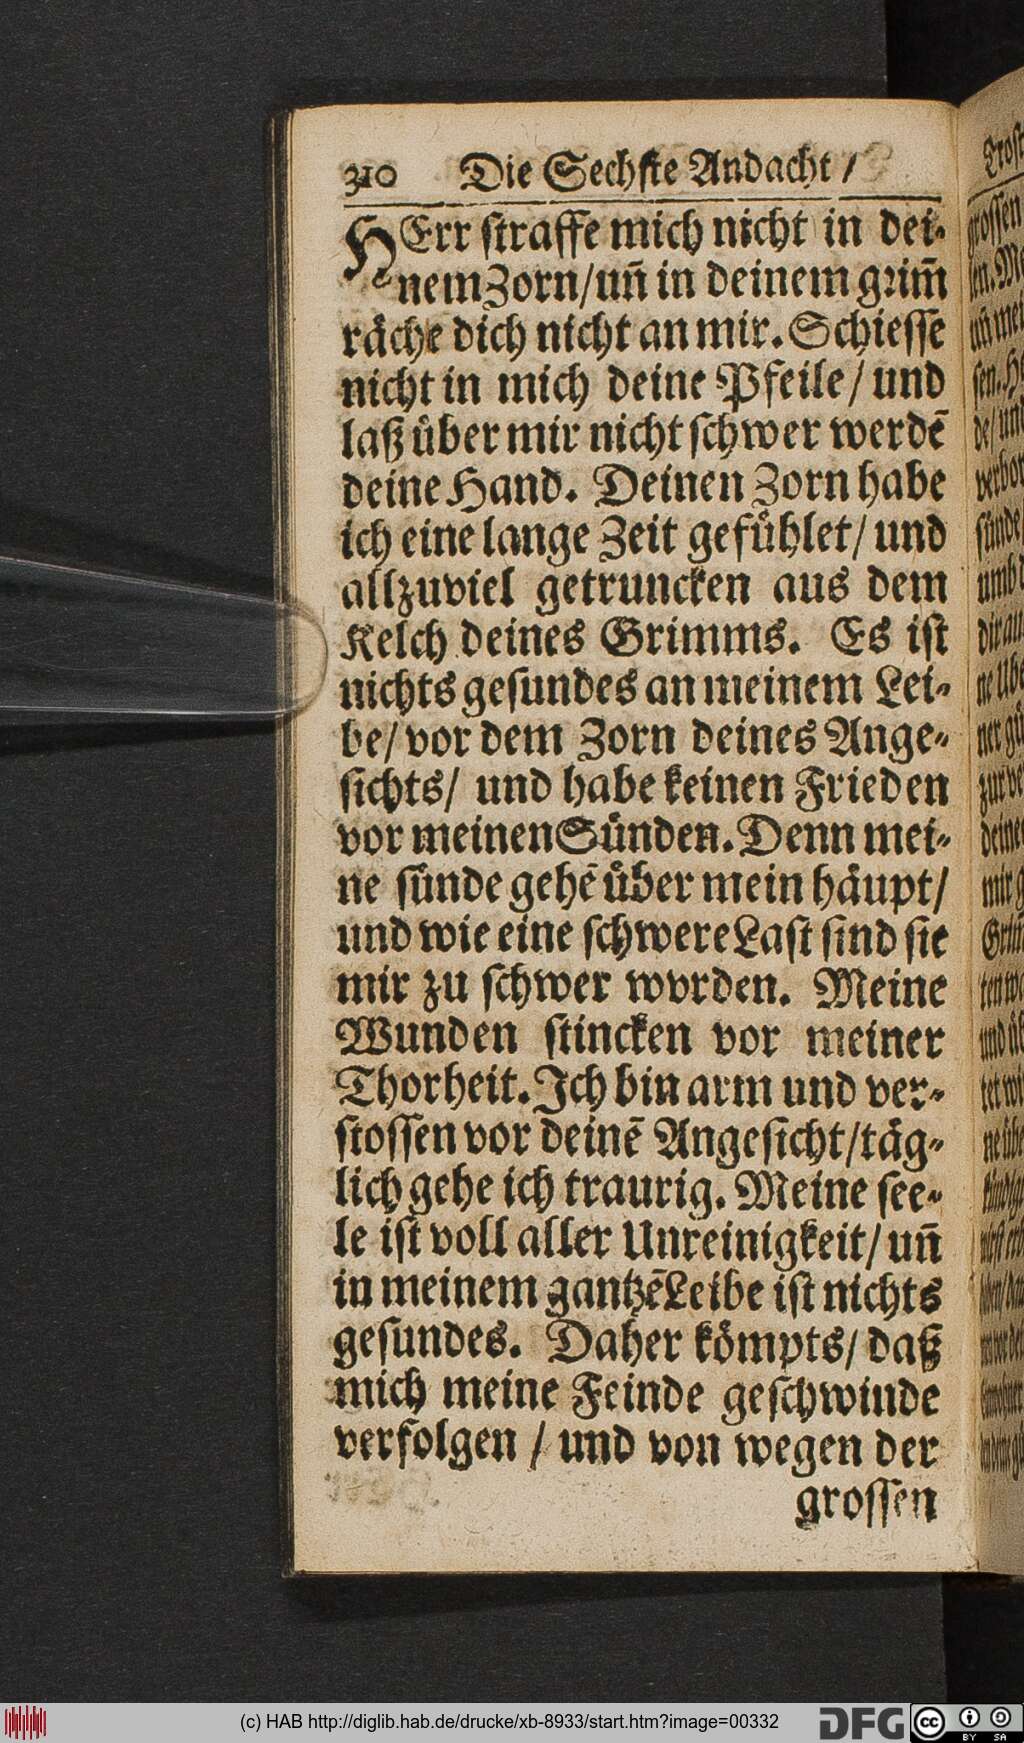 310 Die Sechſte Andacht /
HErr ſtraffe mich nicht in dei-
nem Zorn/uñ in deinem grim̃
räche dich nicht an mir. Schieſſe
nicht in mich deine Pfeile/ und
laß über mir nicht ſchwer werdẽ
deine Hand. Deinen Zorn habe
ich eine lange Zeit gefühlet/ und
allzuviel getruncken aus dem
Kelch deines Grimms. Es iſt
nichts geſundes an meinem Lei-
be/ vor dem Zorn deines Ange-
ſichts/ und habe keinen Frieden
vor meinen Sünden. Denn mei-
ne ſünde gehẽ über mein häupt/
und wie eine ſchwere Laſt ſind ſie
mir zu ſchwer wvrden. Meine
Wunden ſtincken vor meiner
Thorheit. Ich bin arm und ver-
ſtoſſen vor deinẽ Angeſicht/täg-
lich gehe ich traurig. Meine ſee-
le iſt voll aller Unreinigkeit/ uñ
in meinem gantzẽ Leibe iſt nichts
geſundes. Daher kömpts/ daß
mich meine Feinde geſchwinde
verfolgen / und von wegen der
groſſen
(c) HAB http://diglib.hab.de/drucke/xb-8933/start.htm?image=00332
DFG
cc BY SA